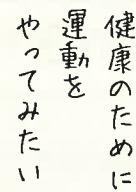 健康のために
運動を
やってみたい